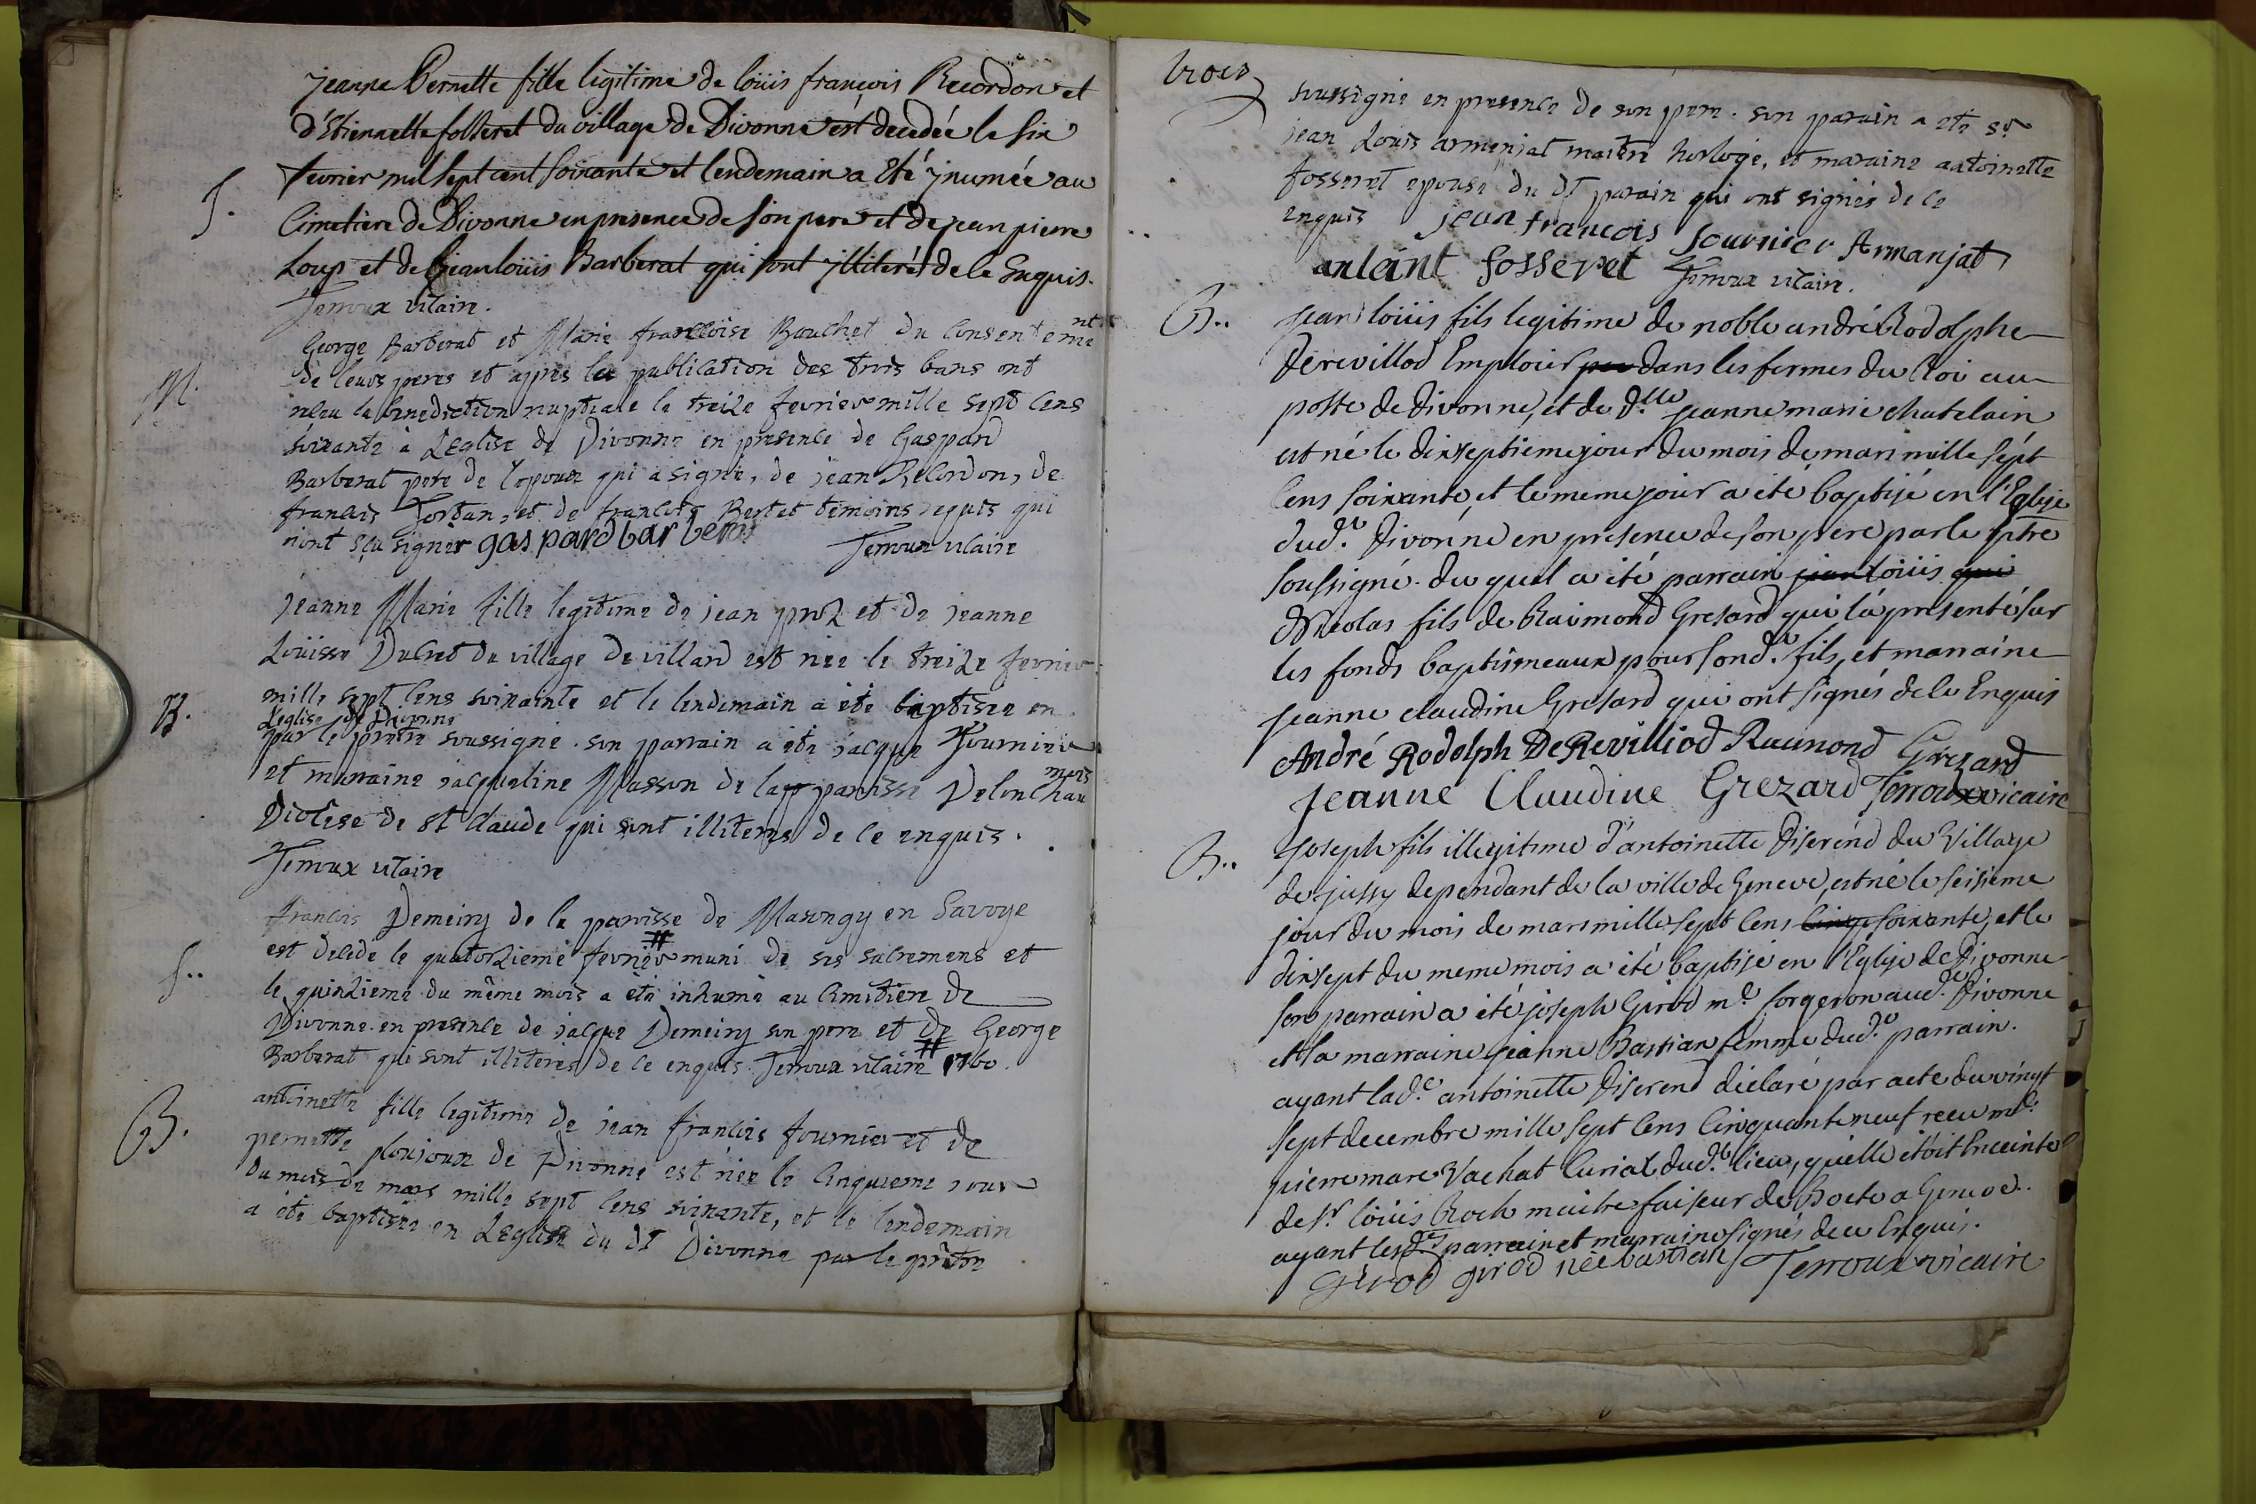 jeanne Pernette fille legitime de loüis françois Recordon et
d'Etiennette fosseret du village de Divonne est decedée le six
S. fevrier mil sept cent soixante et lendemain a Eté jnumée au
Cimetiere de Divonne en presence de son pere et de jean pierre
Loup et de jean loüis Barberat qui sont jlliterés de ce Enquis.
Terroux vicaire.
George Barberat et Marie françoise Bouchet du Consentemnt
de leurs peres et apres la publication des trois bans ont
M. reçu la benediction nuptiale le treize fevrier mille sept cens
soixante à L'Eglise de Divonne en presence de Gaspard
Barberat pere de l'epoux qui a signé, de jean Recordon, de
francois Jordan, et de francois Bertet temoins requis qui
n'ont sçu signer gaspard barberat Terroux vicaire
jeanne Marie fille legitime de jean proz et de jeanne
Loüisse Ducret du village de villard est née le treize fevrier
B. mille sept cens soixante et le lendemain a été baptisee en
L'eglise de Divonne
par le pretre soussigné. son parrain a été jacque Fournier
et marraine jacqueline Masson de la paroisse Delonchau
mois
Diocèse de st Claude qui sont illiteres de ce enquis.
Terroux vicaire
francois Demeiry de la paroisse de Masongy en Savoye
S.. est decede le quatorzieme fevrier # muni de ses sacremens et
le quinzieme du même mois a été inhumé au Cimitiere de
Divonne en presence de jacque Demeiry son pere et de George
Barberat qui sont illiteres de ce enquis Terroux vicaire # 1760.
B. antoinette fille legitime de jean francois fournier et de
pernette ploujoux de Divonne est née le Cinquieme jour
du mois de mars mille sept cens soixante, et le lendemain
a été baptisée en L'Eglise du dt Divonne par le prêtre
trois
soussigné en presence de son pere. son parain a eté sr
jean Louis armenjat maitre horloge, et maraine antoinette
fosseret epouse du dt parain qui ont signés de ce
enquis jean francois fournier Armanjat
antoint fosseret Terroux vicaire.
B.. jean loüis fils legitime de noble andré Rodolphe
Derevillod Emploié dans les fermes du Roi au
poste de divonne, et de dlle jeanne marie chatelain
est né le dixseptieme jour du mois de mars mille sept
cens soixante, et le meme jour a eté baptisé en l'Eglise
dud. Divonne en presence de son pere par le ptre
soussigné. du quel a été parrain jean loüis qui
Nicolas fils de Raimond Gresard qui l'a presenté sur
les fonds baptismeaux pour sond. fils, et marraine
jeanne claudine Gresard qui ont signés de ce Enquis
André Rodolph DeRevilliod Raimond Grezard
Jeanne Claudine Grezard Terroux vicaire
B.. joseph fils illegitime d'antoinette diserend du Village
de jussy dependant de la ville de Geneve, est né le seisieme
jour du mois de mars mille sept cens cinq soixante, et le
dixsept du meme mois a été baptisé en l'Eglise de Divonne
son parrain a été joseph Girod me forgeron aud. de Divonne
et la marraine jeanne Bastian femme dud. parrain.
ayant lade antoinette diserend declaré par acte du vingt
sept decembre mille sept cens cinquante neuf receu me
pierre marc Vachat Curial dud. lieu, quelle étoit Enceinte
de sr loüis Roch maitre faiseur de Boete a Geneve.
ayant lesdts parrain et marraine signés de ce Enquis.
Girod girod née bastian Terroux vicaire